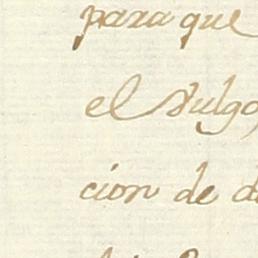 para que
el Vulgo,
cion de d